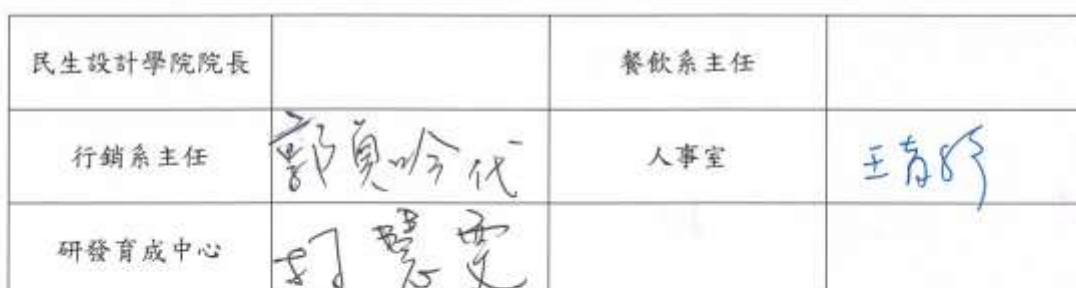 民生設計學院院長 餐飲系主任
行銷系主任 郭貞吟代 人事室
研發育成中心